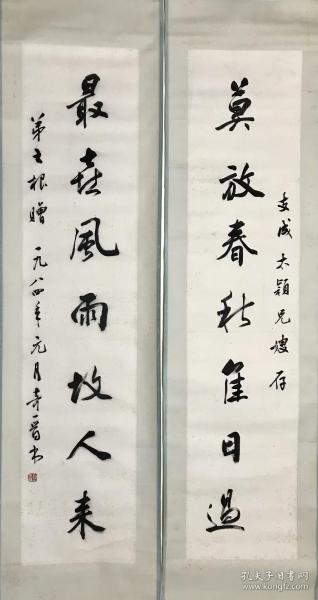 莫放春秋佳日過
友成太穎兄嫂存
最喜風雨故人来
弟士根贈 一九八四年元月 晋书
孔夫子旧书网